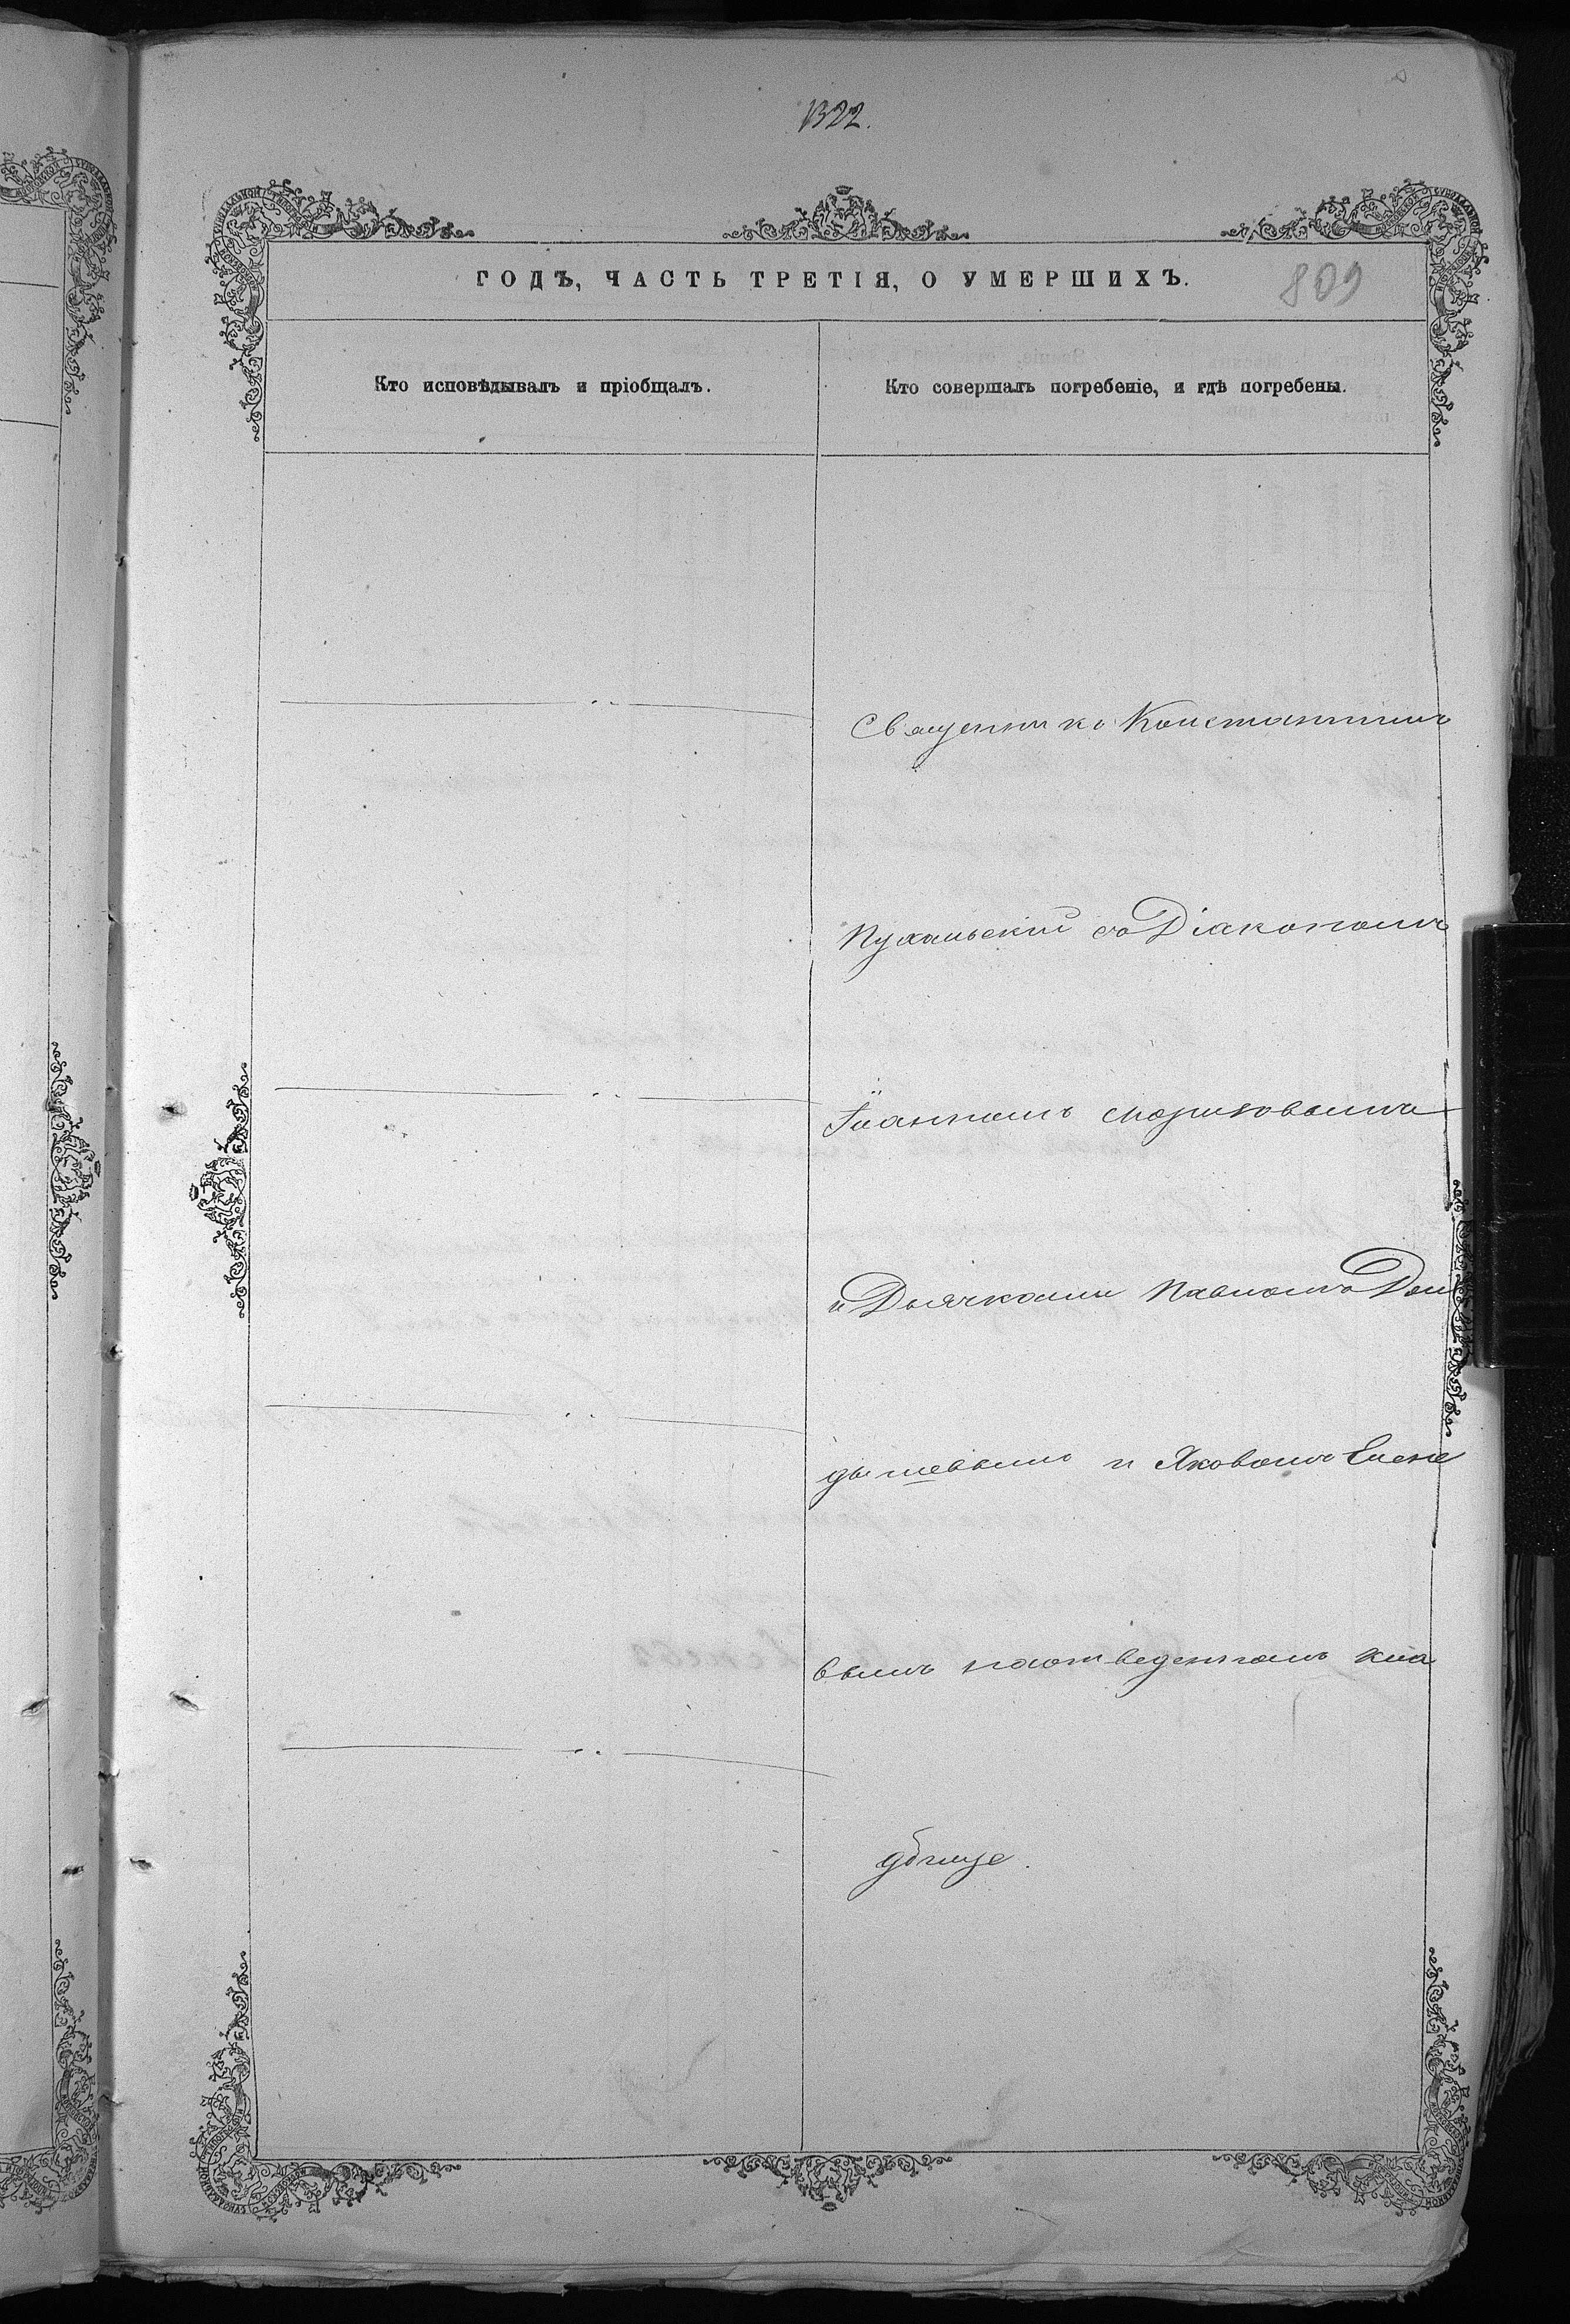 1322.
ГОДЪ, ЧАСТЬ ТРЕТІЯ, О УМЕРШИХЪ.
809
Кто исповѣдывалъ и пріобщалъ.
Кто совершалъ погребеніе, и гдѣ погребены.
Священникъ Константинъ
съ Діакономъ
Іоанномъ
и Дьячками Павломъ Дом
и Яковомъ Елене
вымъ наотведенномъ кла
дбище.